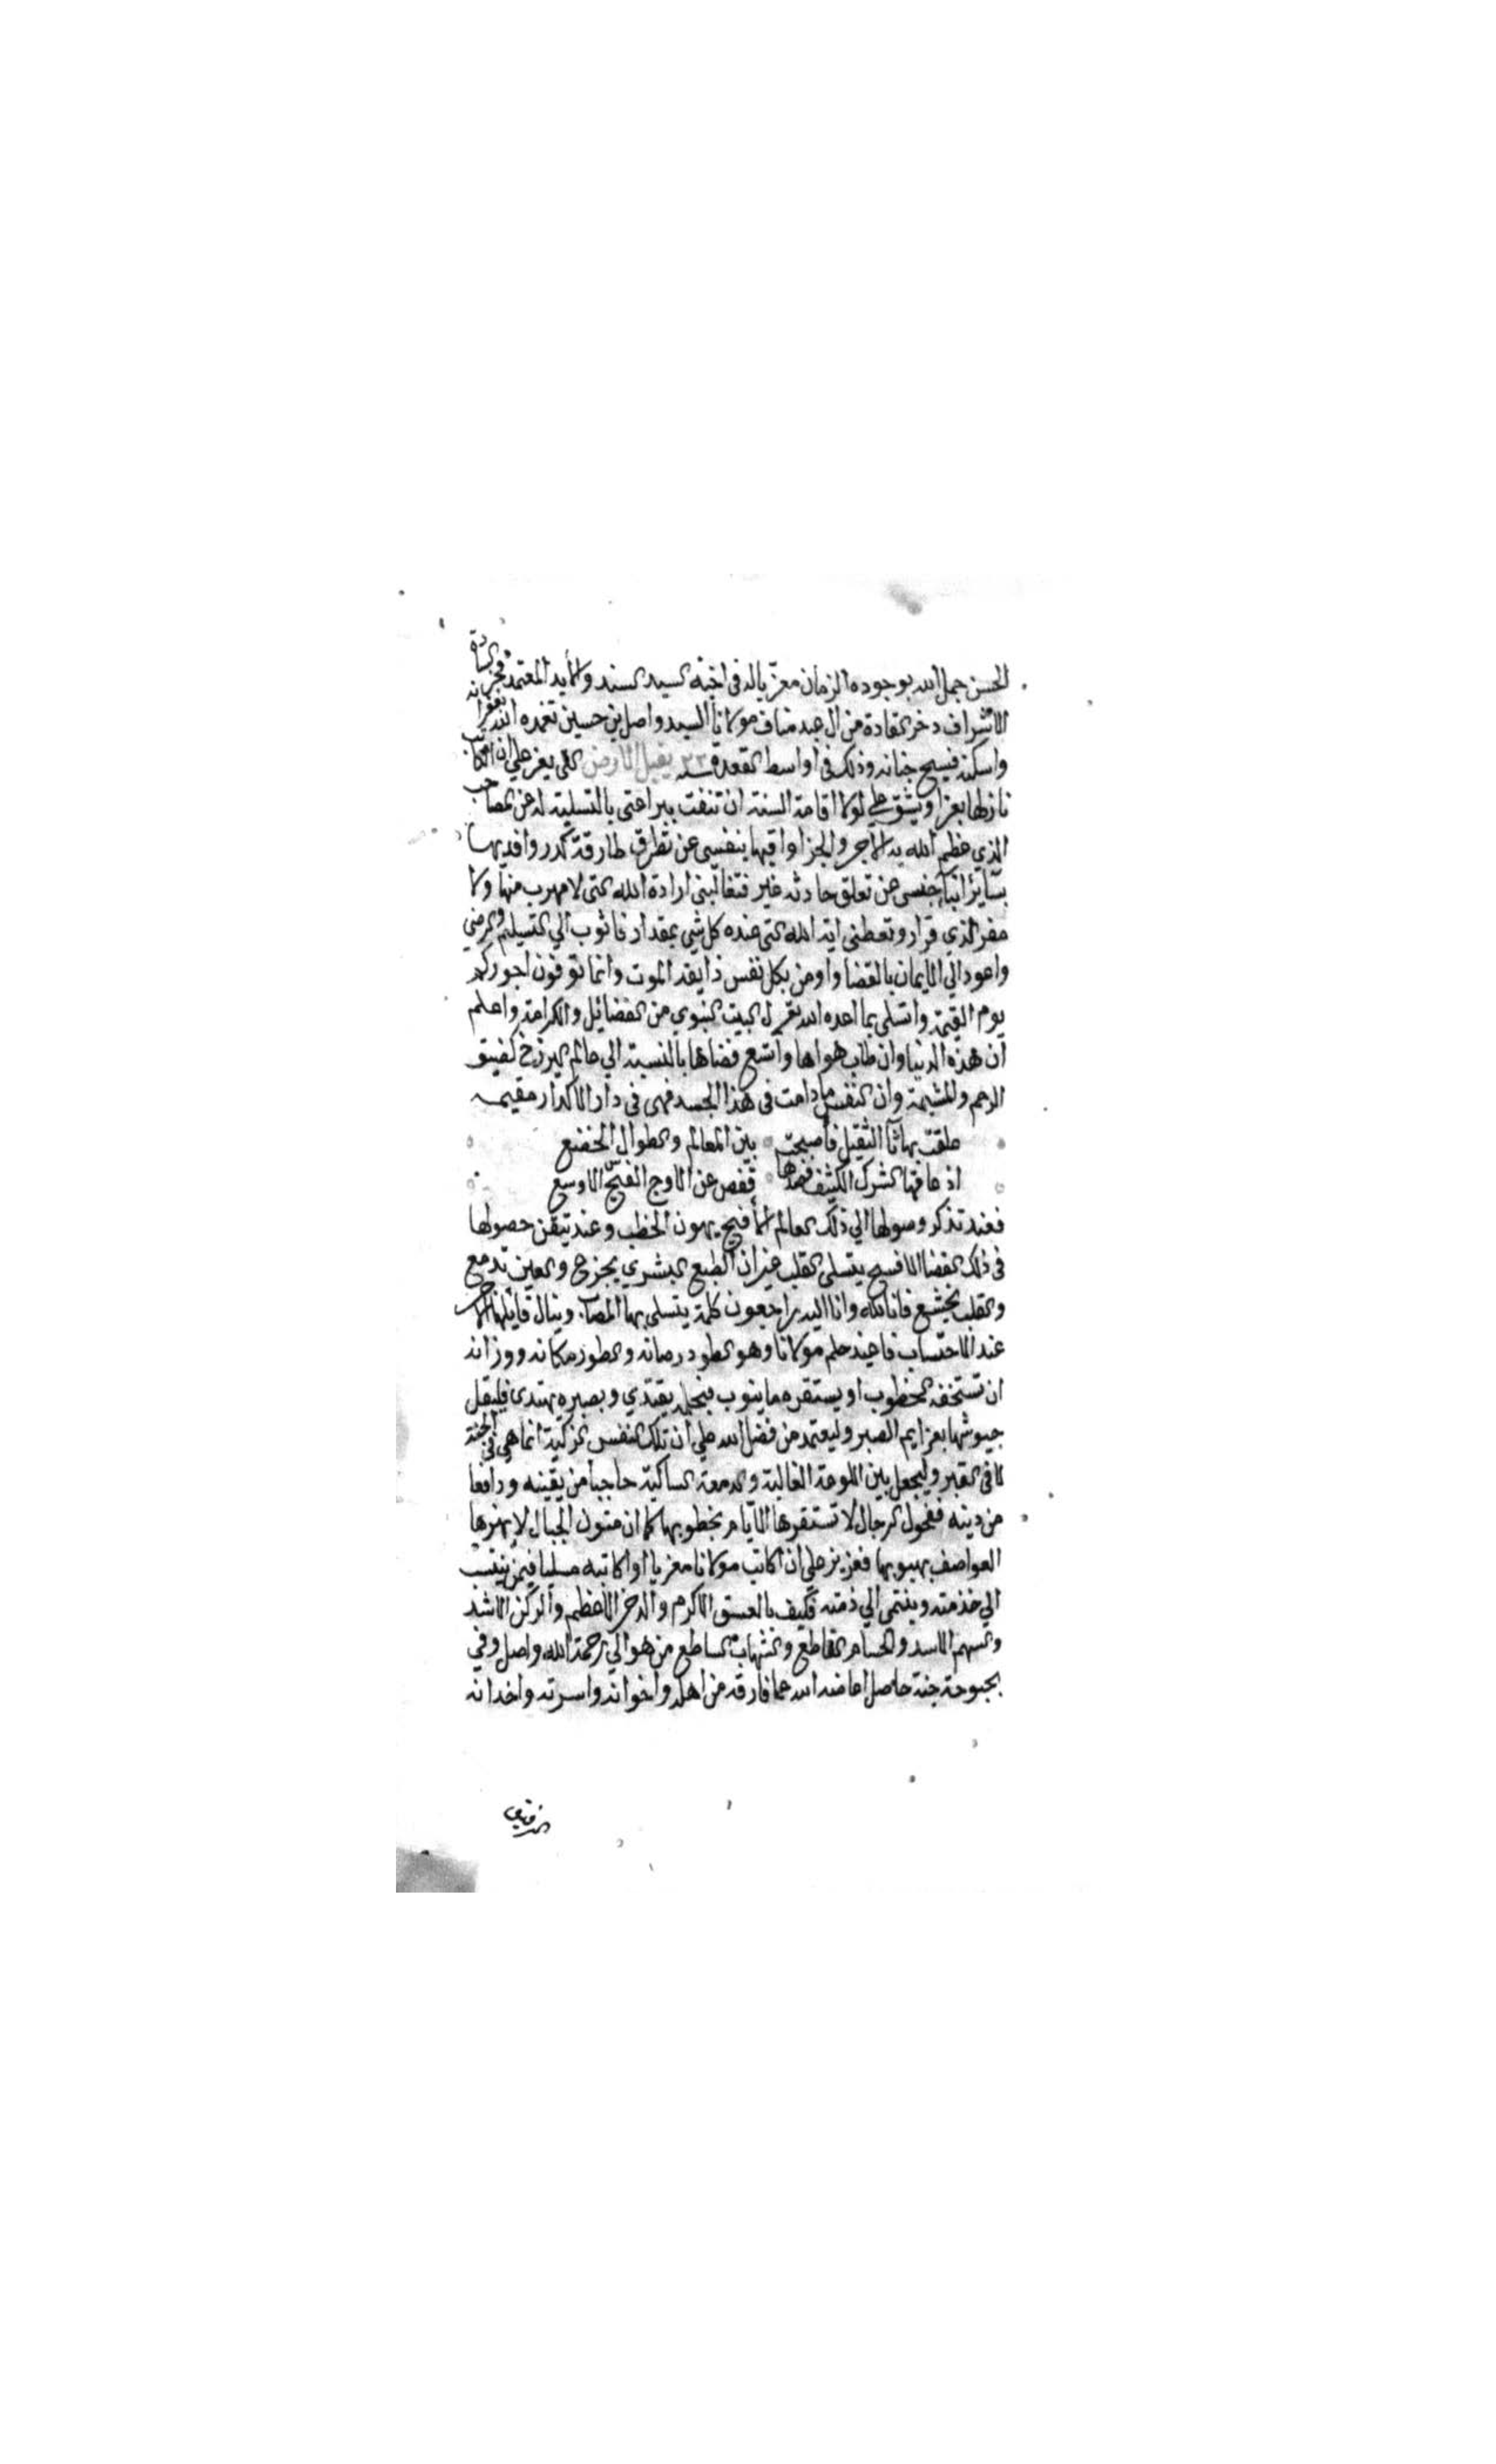 الحسن جمل الله بوجوده الزمان معزيا له في اخيه السيد السند والايد المعتمد فخر السادة
الاشراف ذخر القادة من ال عبد مناف مولانا السيد واصل بن حسين تغمده الله بغفرانه
واسكنه فسيح جنانه وذلك في اواسط القعدة سنة ٢٣ يقبل الارض التي يعز علي ان اكاتب
نازلها بعزا ويشق علي لولا اقامة السنة ان تنفث يراعتي بالتسلية له عن المصاب
الذي عظم الله به الاجر والجزا واقيها بنفسي عن تطرق طارقة كدر وافديها
بساير ابناء جنسي عن تعلق حادثه غير فتغالبني ارادة الله التي لا مهرب منها ولا
مفر لذي قرار وتعظني اية الله التي عنده كل شي بمقدار فاثوب الي التسليم والرضي
واعود الي الايمان بالقضا واومن بكل نفس ذايقة الموت وانما توفون اجوركم
يوم القيمة واتسلى بما اعده الله تعالى البيت النبوي من الفضائل والكرامة واعلم
ان هذه الدنيا وان طاب هواها واتسع فضاها بالنسبة الي عالم البرزخ كضيق
الرحم والمشيمة وان النفس ما دامت في هذا الجسد فهي في دار الاكدار مقيمه
علقت بها ثا الثقيل فاصبحت بين المعالم والطوال الخضع
اذ عاقها الشرك الكثيف فصدها قفص عن الاوج الفسيح الاوسع
فعند تذكر وصولها الي ذلك العالم الافيح يهون الخطب وعند تيقن حصولها
في ذلك الفضا الافسح يتسلى القلب غير ان الطبع البشري يجزع والعين تدمع
والقلب يخشع فانا لله وانا اليه راجعون كلمة يتسلى بها المصاب وينال قايلها الاجر
عند الاحتساب فاعيذ حلم مولانا وهو الطود رصانه والطور مكانه ووزانه
ان تستخفه الخطوب او يستفزه ما ينوب فبحلمه يقتدي وبصبره يهتدى فليقل
جيوشها بعزايم الصبر وليعتمد من فضل الله علي ان تلك النفس الزكية انما هي في الجنة
لا في القبر وليجعل بين اللوعة الغالبة والدمعة الساكبة حاجبا من يقينه ودافعا
من دينه ففحول الرجال لا تستفزها الايام بخطوبها كما ان متون الجبال لا يهزها
العواصف بهبوبها فعزيز علي ان اكاتب مولانا معزيا او اكاتبه مسليا فيمن ينتسب
الي خدمته وينتمي الي ذمته فكيف بالصنو الاكرم والذخر الاعظم والركن الاشد
والسهم الاسد والحسام القاطع والشهاب الساطع من هو الي رحمة الله واصل وفي
بحبوحة جنة حاصل اعاضه الله عما فارقه من اهله واخوانه واسرته واخدانه